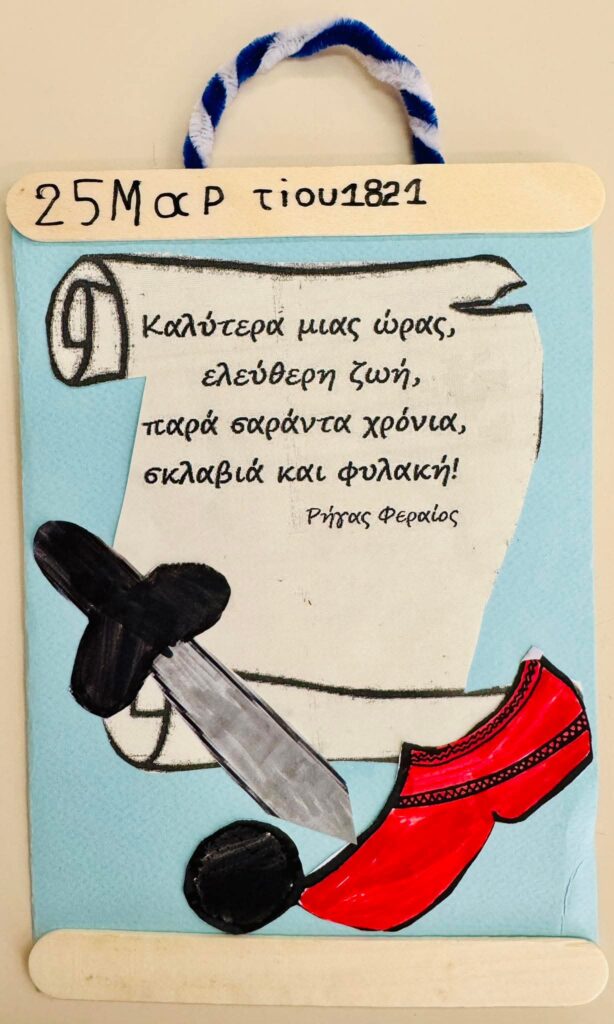 25 Μαρτίου 1821
Καλύτερα μιας ώρας,
ελεύθερη ζωή,
παρά σαράντα χρόνια,
σκλαβιά και φυλακή!
Ρήγας Φεραίος